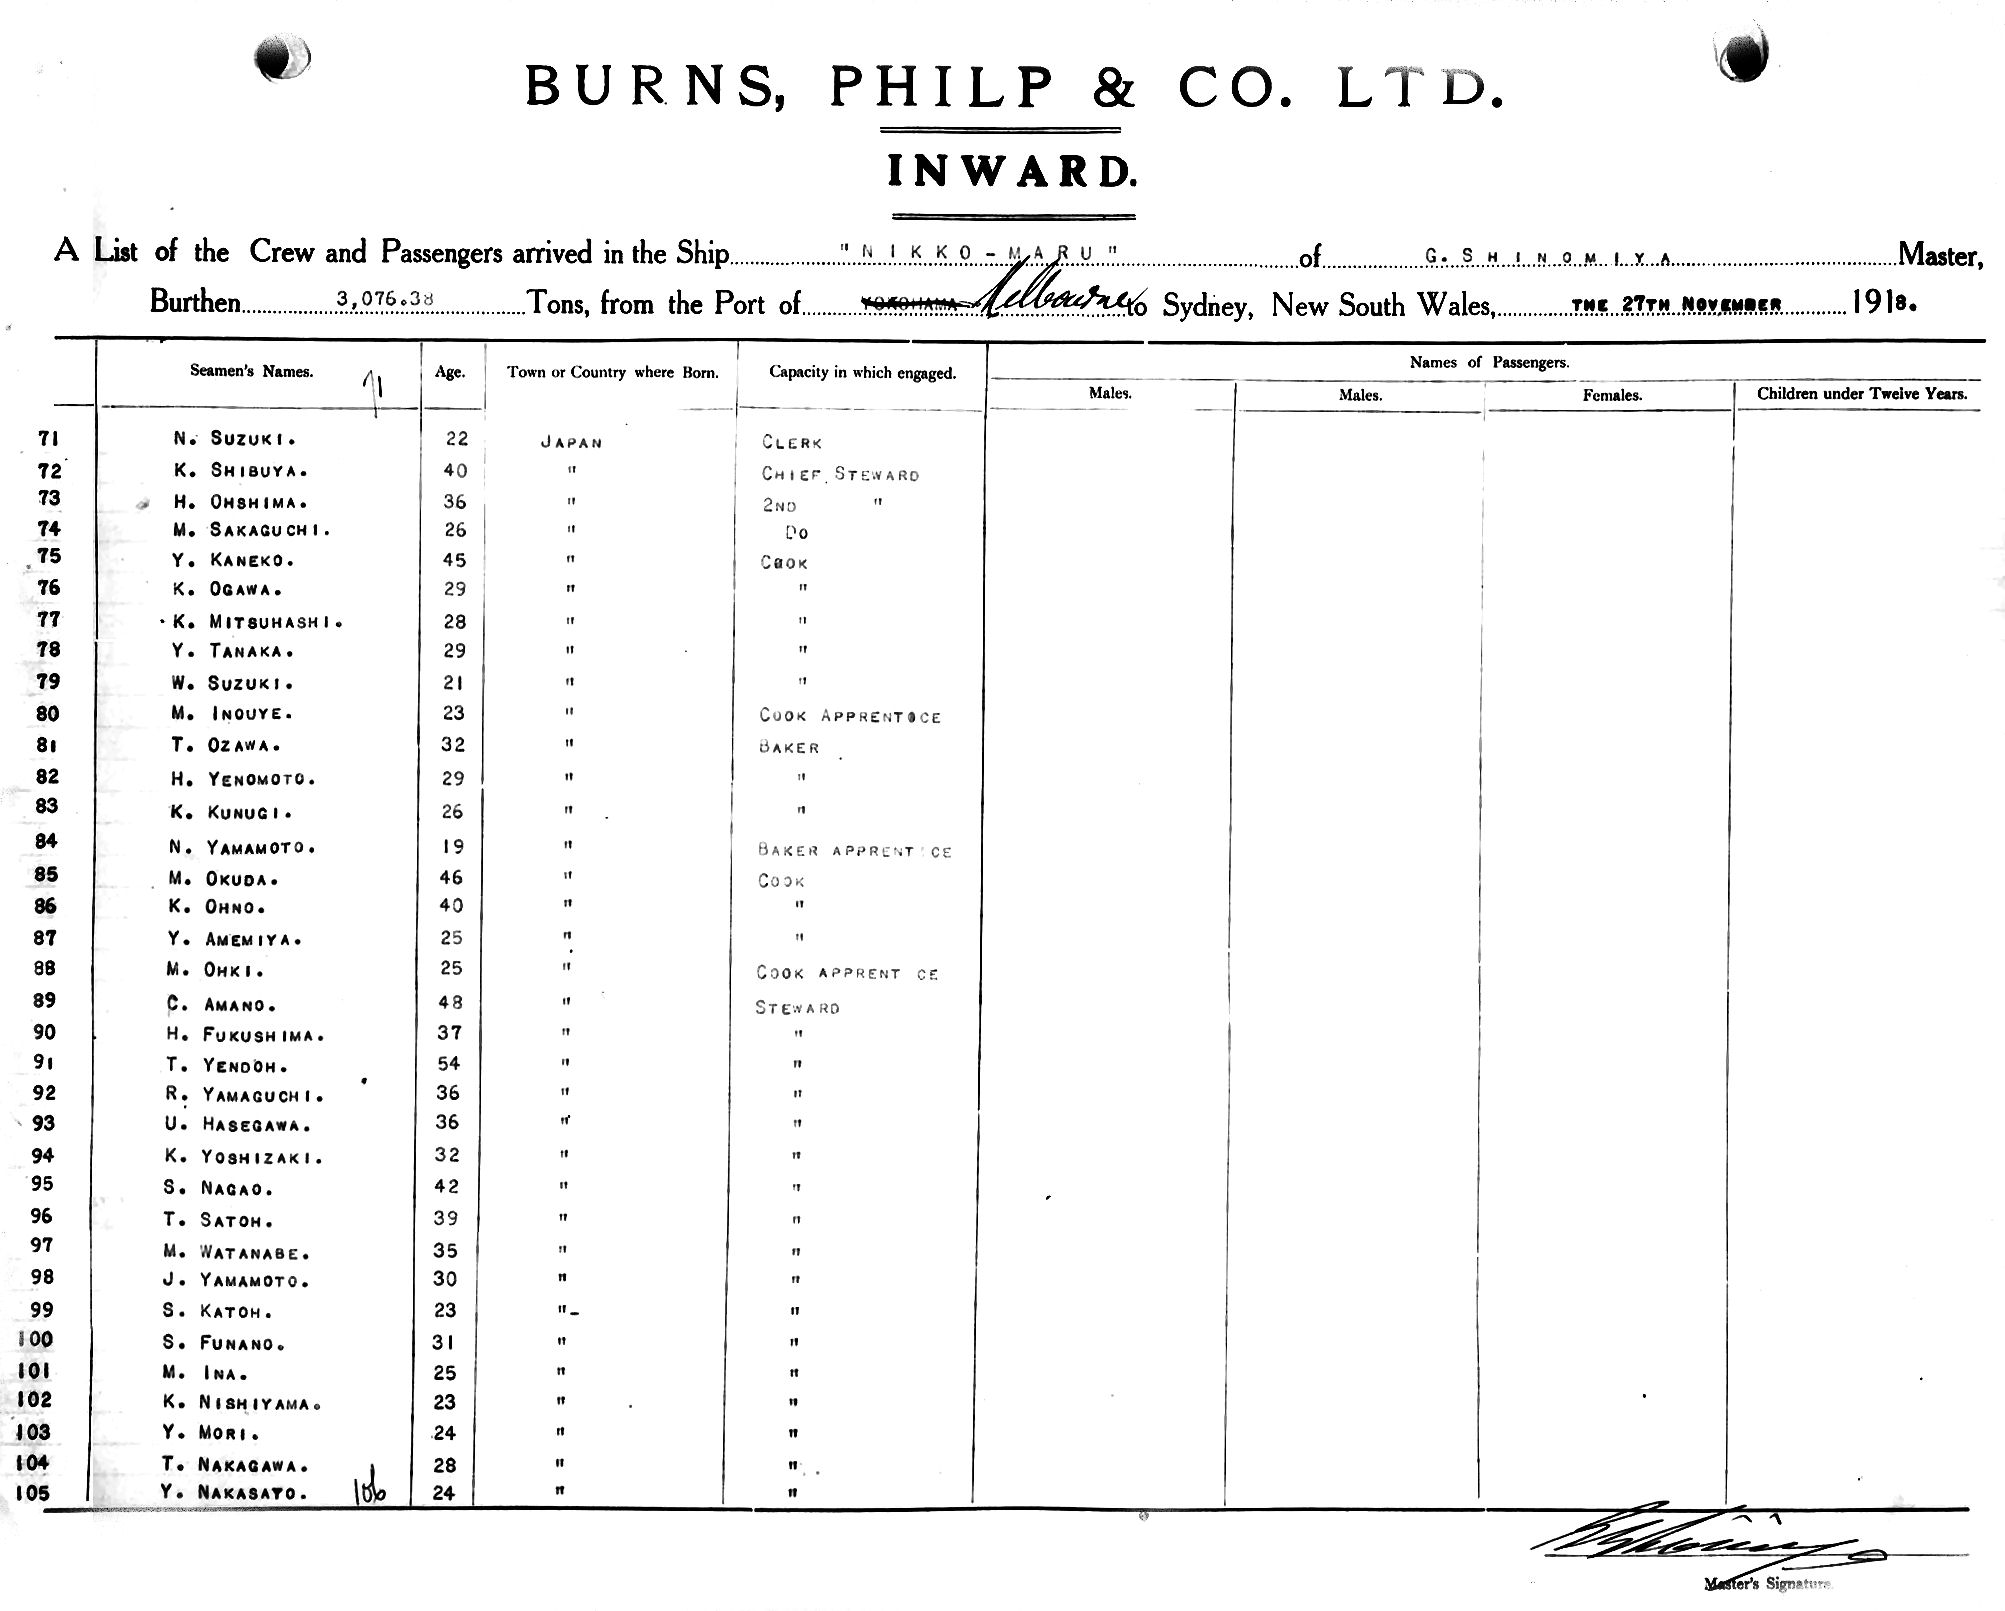 BURNS, PHILP & CO. LTD.
INWARD.
A List of the Crew and Passengers arrived in the Ship "NIKKO-MARU" of G. SHINOMIYA Master,
Burthen 3,076.38 Tons, from the Port of YOKOHAMA Melbourne to Sydney, New South Wales, THE 27TH NOVEMBER 1918.
Seamen's Names. 71 Age. Town or Country where Born. Capacity in which engaged. Names of Passengers.
Males. Males. Females. Children under Twelve Years.
71 N. SUZUKI. 22 JAPAN CLERK
72 K. SHIBUYA. 40 " CHIEF STEWARD
73 H. OHSHIMA. 36 " 2ND "
74 M. SAKAGUCHI. 26 " DO
75 Y. KANEKO. 45 " COOK
76 K. OGAWA. 29 " "
77 K. MITSUHASHI. 28 " "
78 Y. TANAKA. 29 " "
79 W. SUZUKI. 21 " "
80 M. INOUYE. 23 " COOK APPRENTOCE
81 T. OZAWA. 32 " BAKER
82 H. YENOMOTO. 29 " "
83 K. KUNUGI. 26 " "
84 N. YAMAMOTO. 19 " BAKER APPRENTICE
85 M. OKUDA. 46 " COOK
86 K. OHNO. 40 " "
87 Y. AMEMIYA. 25 " "
88 M. OHKI. 25 " COOK APPRENT CE
89 C. AMANO. 48 " STEWARD
90 H. FUKUSHIMA. 37 " "
91 T. YENDOH. 54 " "
92 R. YAMAGUCHI. 36 " "
93 U. HASEGAWA. 36 " "
94 K. YOSHIZAKI. 32 " "
95 S. NAGAO. 42 " "
96 T. SATOH. 39 " "
97 M. WATANABE. 35 " "
98 J. YAMAMOTO. 30 " "
99 S. KATOH. 23 "- "
100 S. FUNANO. 31 " "
101 M. INA. 25 " "
102 K. NISHIYAMA. 23 " "
103 Y. MORI. 24 " "
104 T. NAKAGAWA. 28 " "
105 Y. NAKASATO. 106 24 " "
Master's Signature.